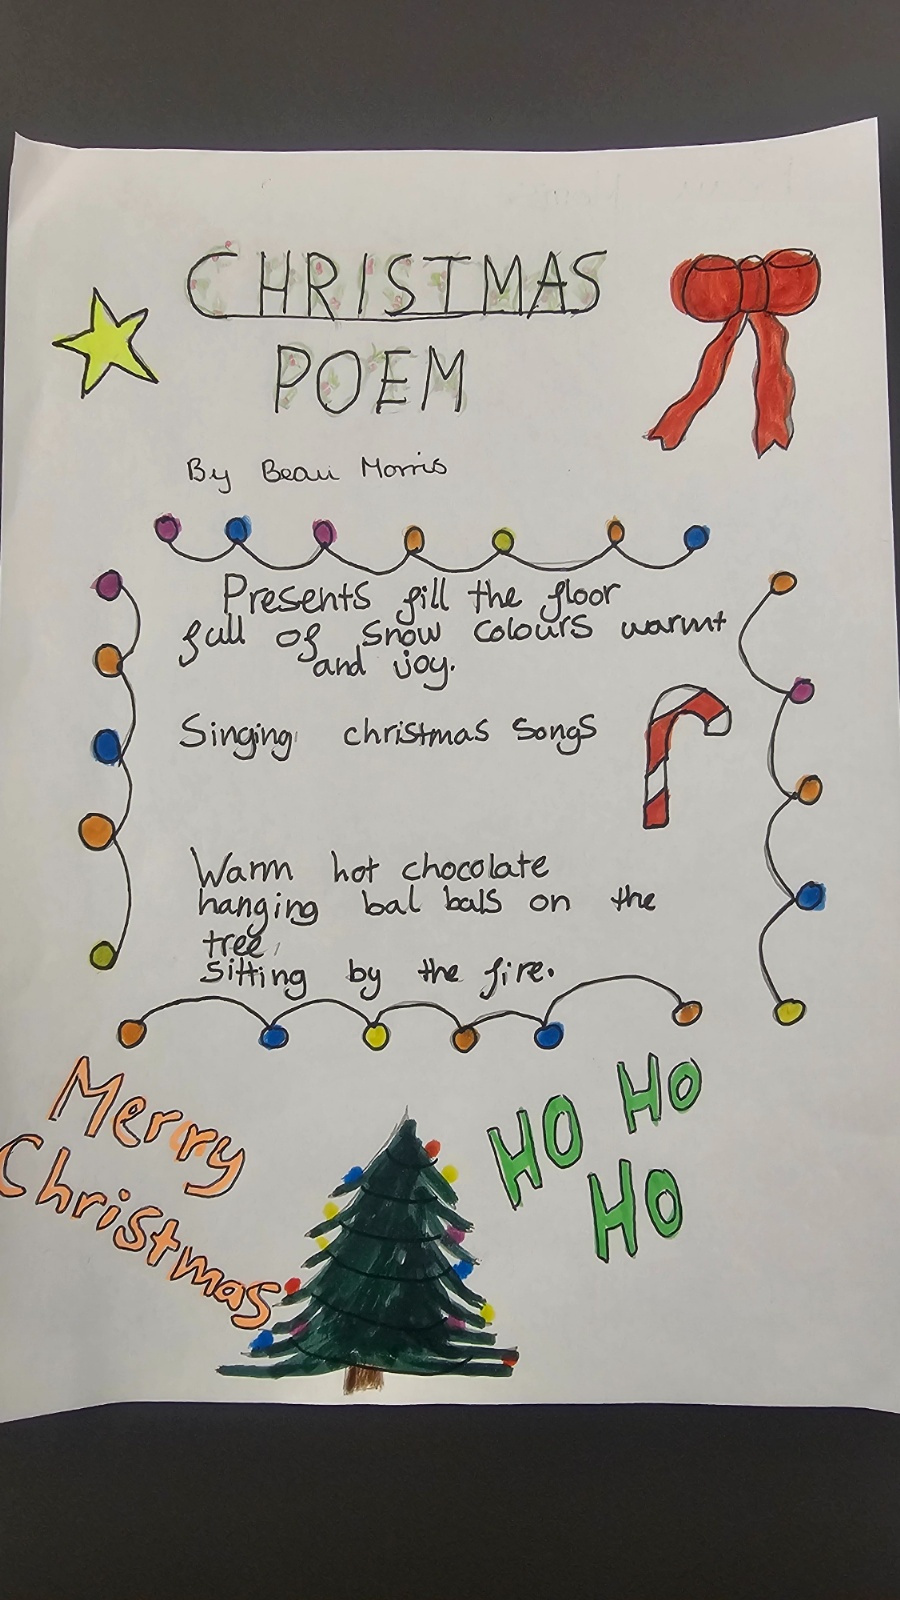 CHRISTMAS
POEM
By Beau Morris
Presents fill the floor
full of snow colours warmt
and joy.
Singing christmas songs
Warm hot chocolate
hanging bal bals on the
tree,
sitting by the fire.
Merry
Christmas
HO HO
HO